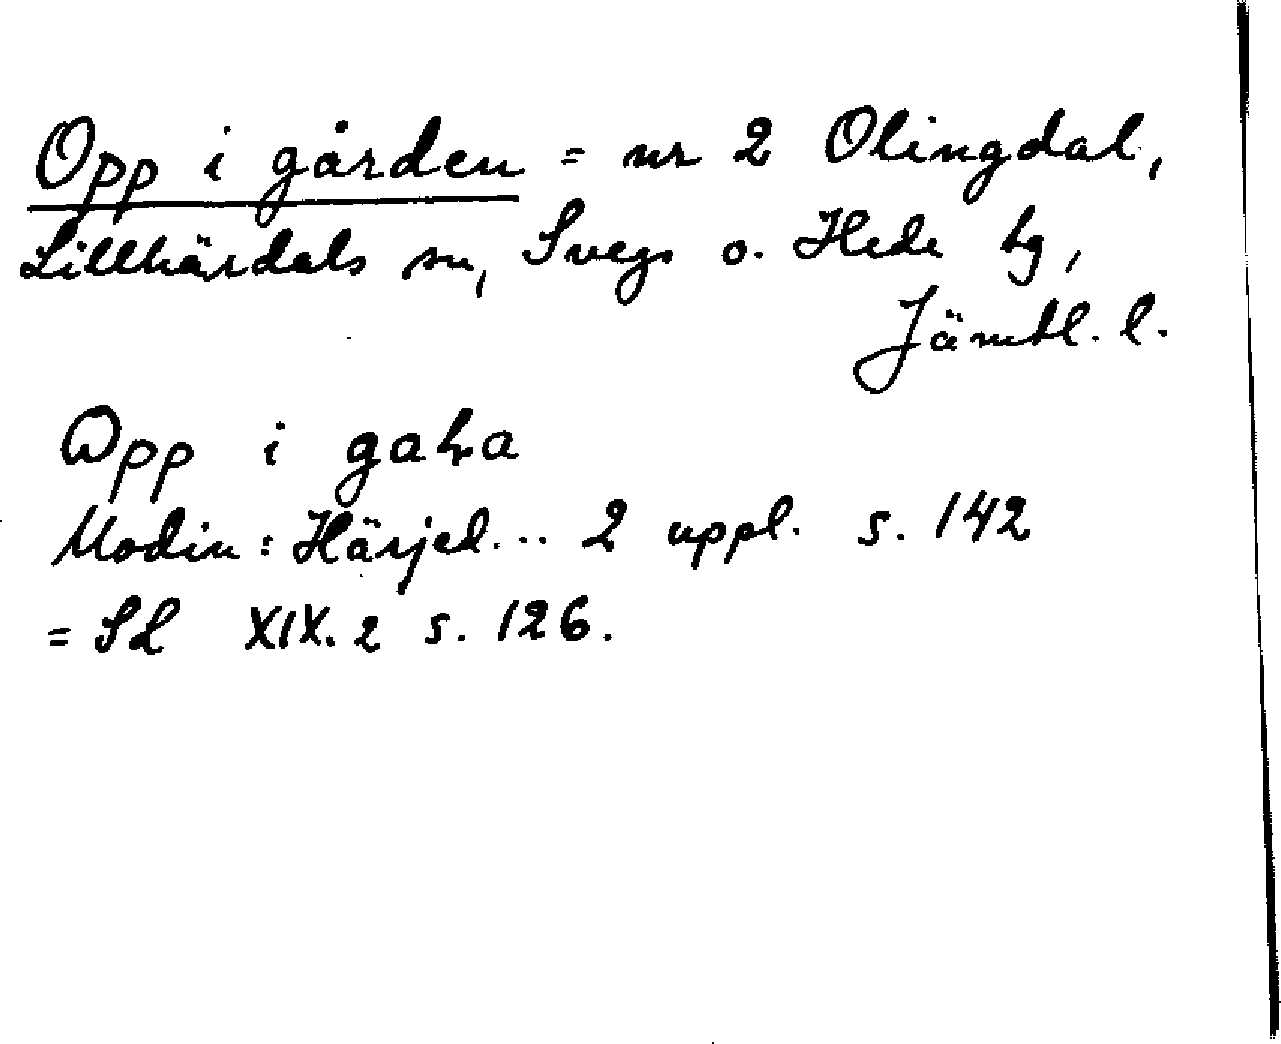 Opp i gården = nr 2 Olingdal,
Lillhärdals sn, Svegs o. Hede tg,
Jämtl. l.
Opp i gaḷa
Modin: Härjed... 2 uppl. s. 142
= SL XIX. 2 s. 126.